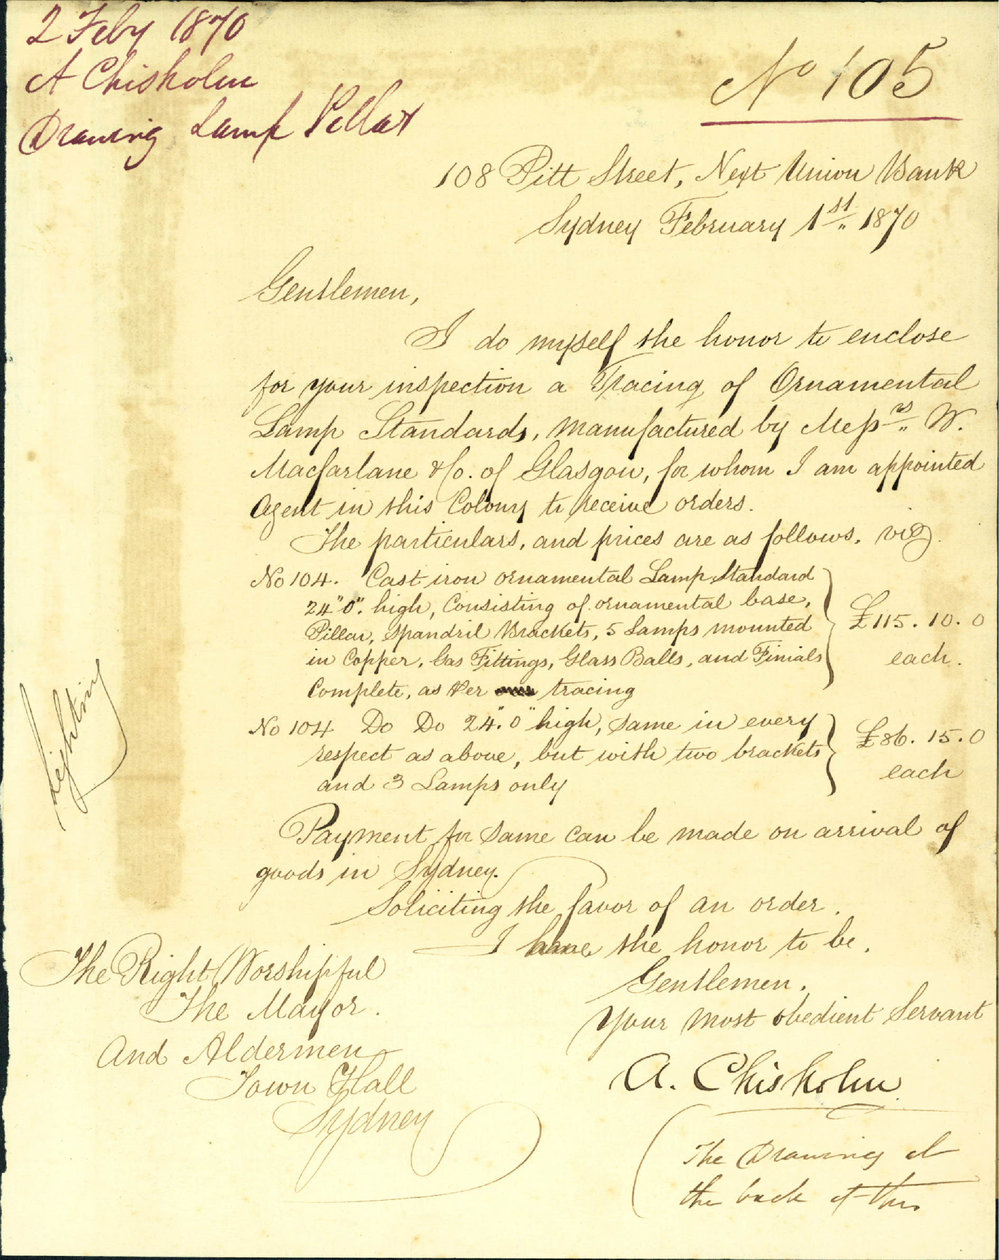 2 Feby 1870
A Chisholm
Drawing Lamp Pillar
No 105
108 Pitt Street, Next Union Bank
Sydney February 1st 1870
Gentlemen,
I do myself the honor to enclose
for your inspection a Tracing of Ornamental
Lamp Standards, manufactured by Messrs. W.
Macfarlane & Co. of Glasgow, for whom I am appointed
Agent in this Colony to receive orders.
The particulars, and prices are as follows, viz.
No 104. Cast iron ornamental Lamp Standard
24"0". high, Consisting of ornamental base,
Pillar, Spandril Brackets, 5 Lamps mounted
in Copper, Gas Fittings, Glass Balls, and Finials
Complete, as per tracing
£115.10.0
each.
No 104 Do Do 24"0" high, same in every
respect as above, but with two brackets
and 3 Lamps only
£86.15.0
each
Payment for same can be made on arrival of
goods in Sydney.
Soliciting the favor of an order.
I have the honor to be.
Gentlemen.
Your most obedient Servant
A. Chisholm
The Right Worshipful
The Mayor.
And Aldermen
Town Hall
Sydney
The Drawing at
the back of this
Lighting